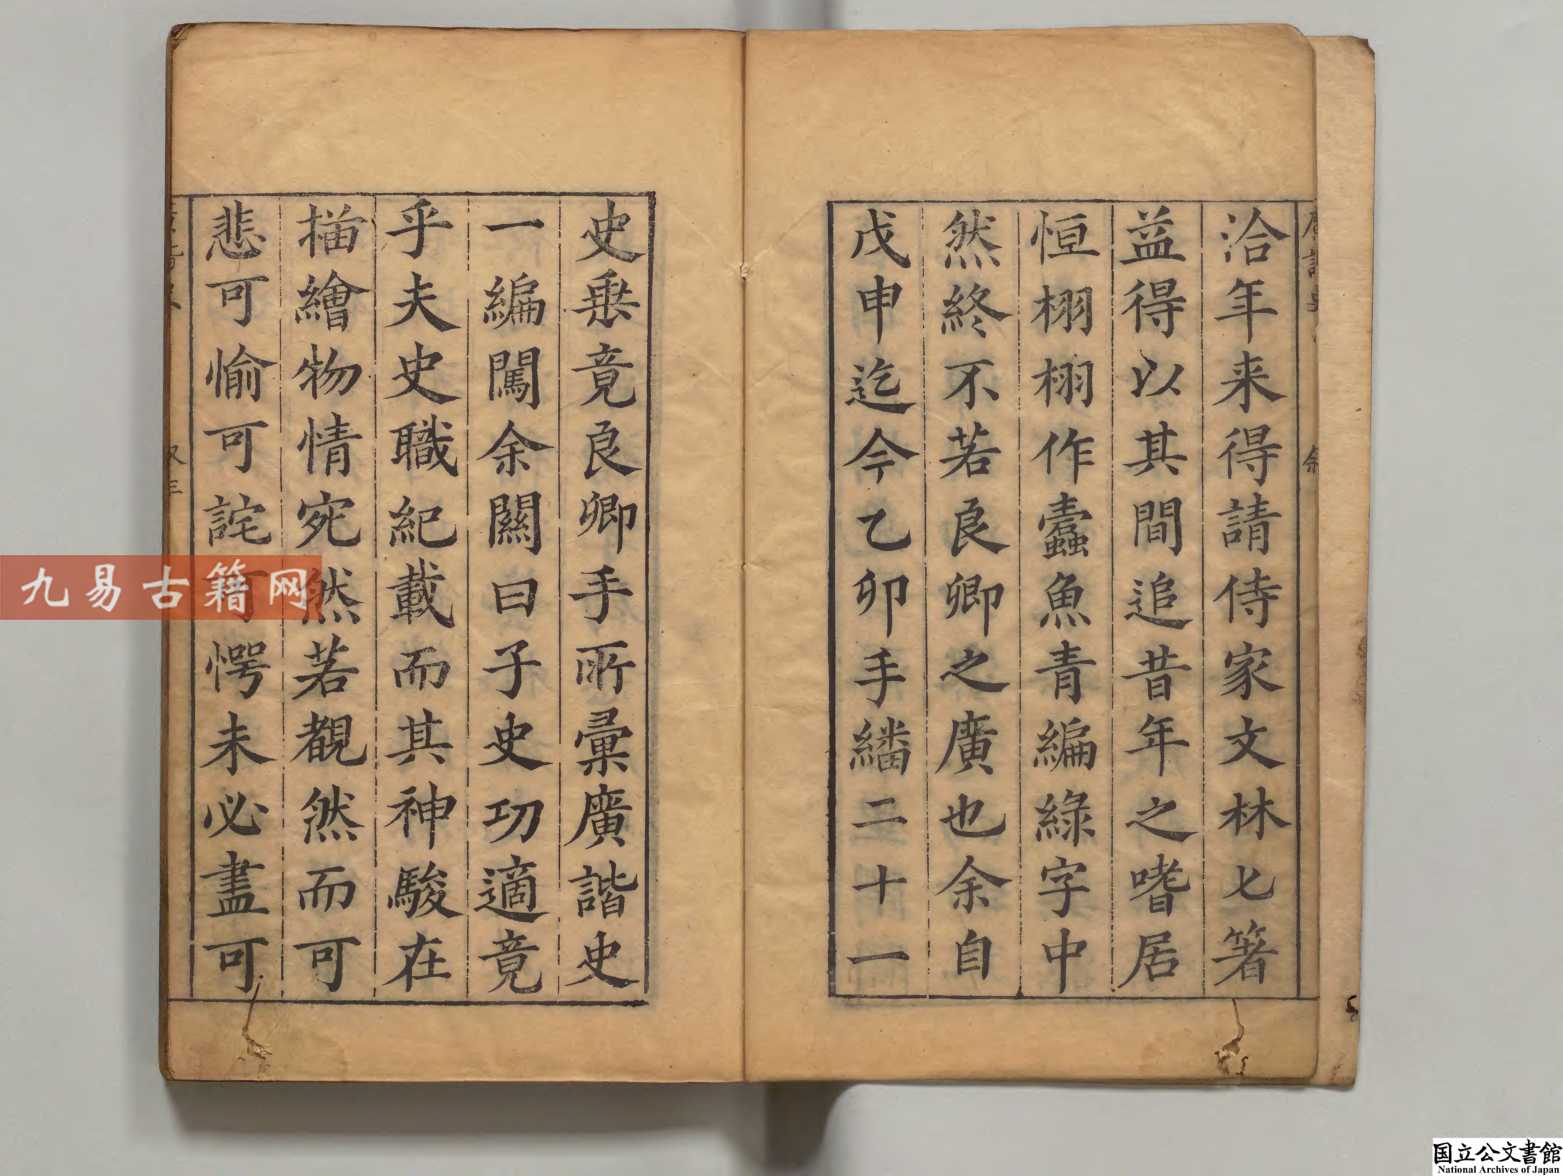 洽年来得請侍家文林七箸
益得以其間追昔年之嗜居
恒栩栩作蠹魚青編綠字中
然終不若良卿之廣也余自
戊申迄今乙卯手繙二十一
史乗竟良卿手所彙廣諧史
一編闖余關曰子史功適竟
乎夫史職紀載而其神駿在
描繪物情宛然若覩然而可
悲可愉可詫可愕未必盡可
九易古籍网
国立公文書館
National Archives of Japan